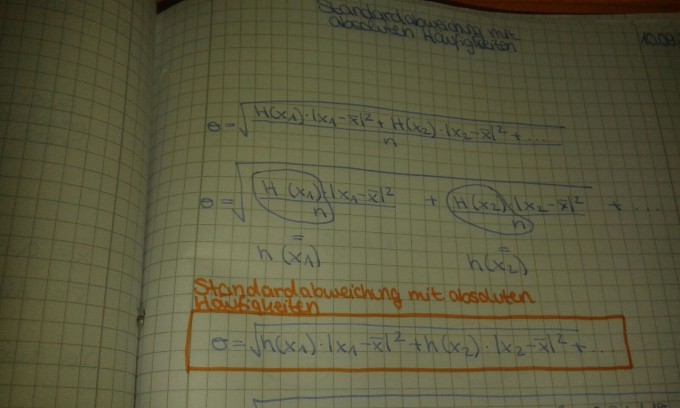 Standardabweichung mit
absoluten Häufigkeiten
10.09.
σ = √(H(x1)·|x1-x̄|² + H(x2)·|x2-x̄|² + .... / n)
σ = √(H(x1)·|x1-x̄|² / n + H(x2)·|x2-x̄|² / n + ....
= =
h(x1) h(x2)
Standardabweichung mit absoluten
Häufigkeiten
σ = √h(x1)·|x1-x̄|² + h(x2)·|x2-x̄|² + ....